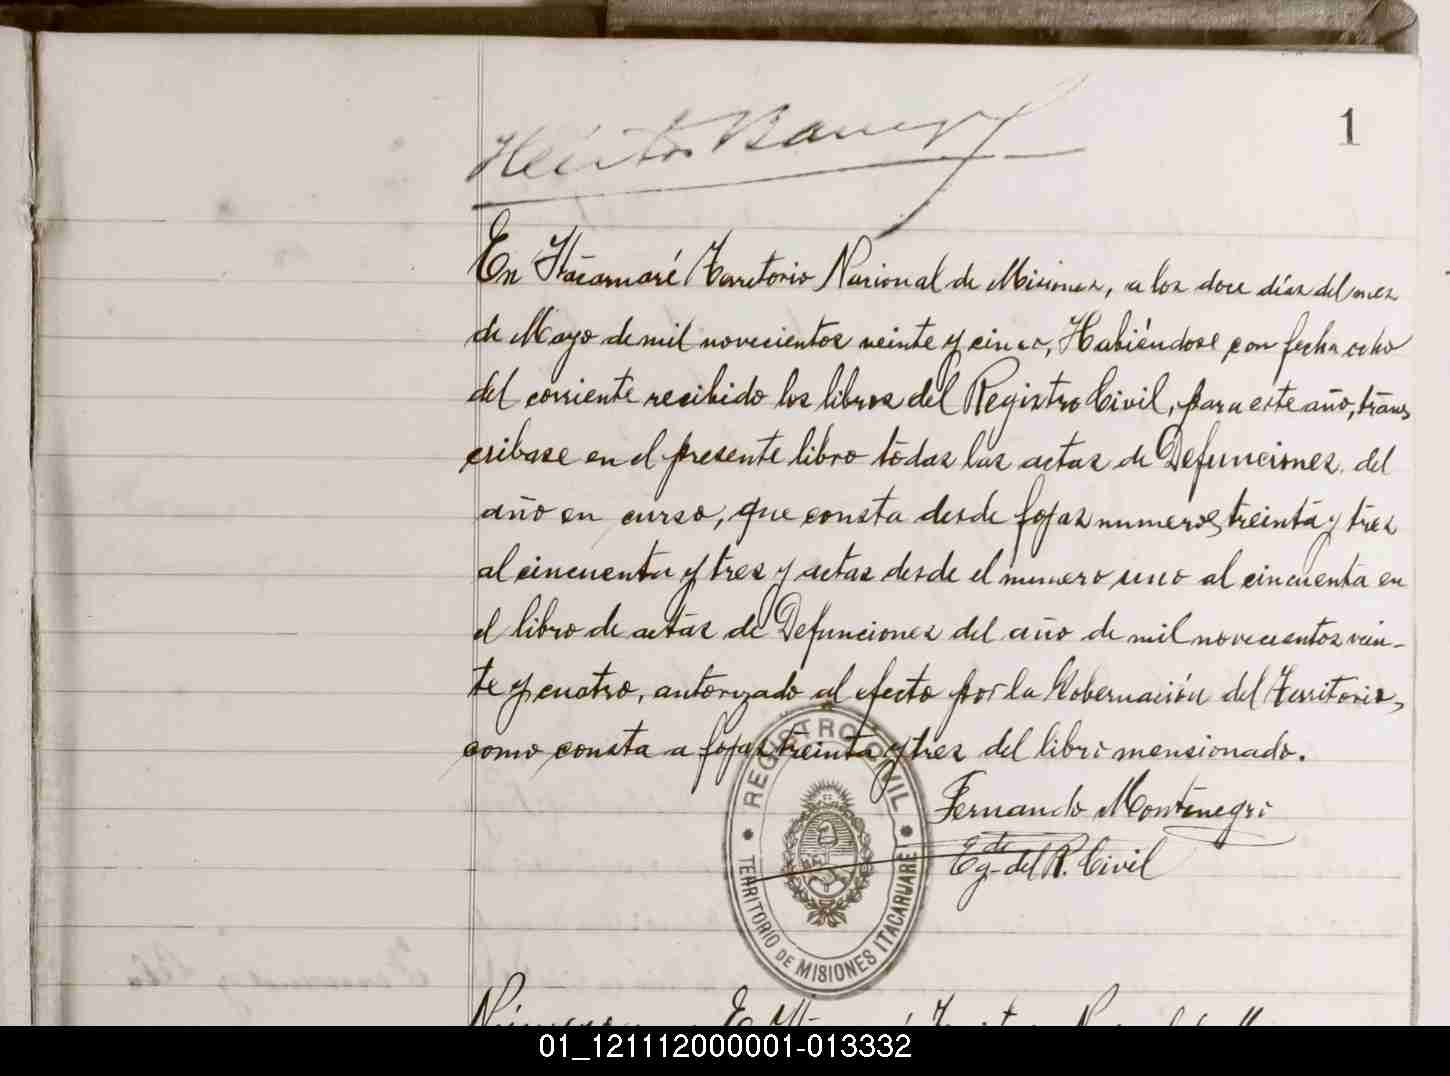 Héctor Barreyro
1
En Itacaruaré Territorio Nacional de Misiones, a los doce días del mes
de Mayo de mil novecientos veinte y cinco, Habiéndose con fecha ocho
del corriente recibido los libros del Registro Civil, para este año, trans
cribase en el presente libro todas las actas de Defunciones del
año en curso, que consta desde fojas numeros treinta y tres
al cincuenta y tres y actas desde el numero uno al cincuenta en
el libro de actas de Defunciones del año de mil novecientos vein-
te y cuatro, autorizado al efecto por la Gobernación del Territorio,
como consta a fojas treinta y tres del libro mensionado.
Fernando Montenegro
Egdo del R. Civil
REGISTRO CIVIL
TERRITORIO DE MISIONES ITACARUARE
01_121112000001-013332